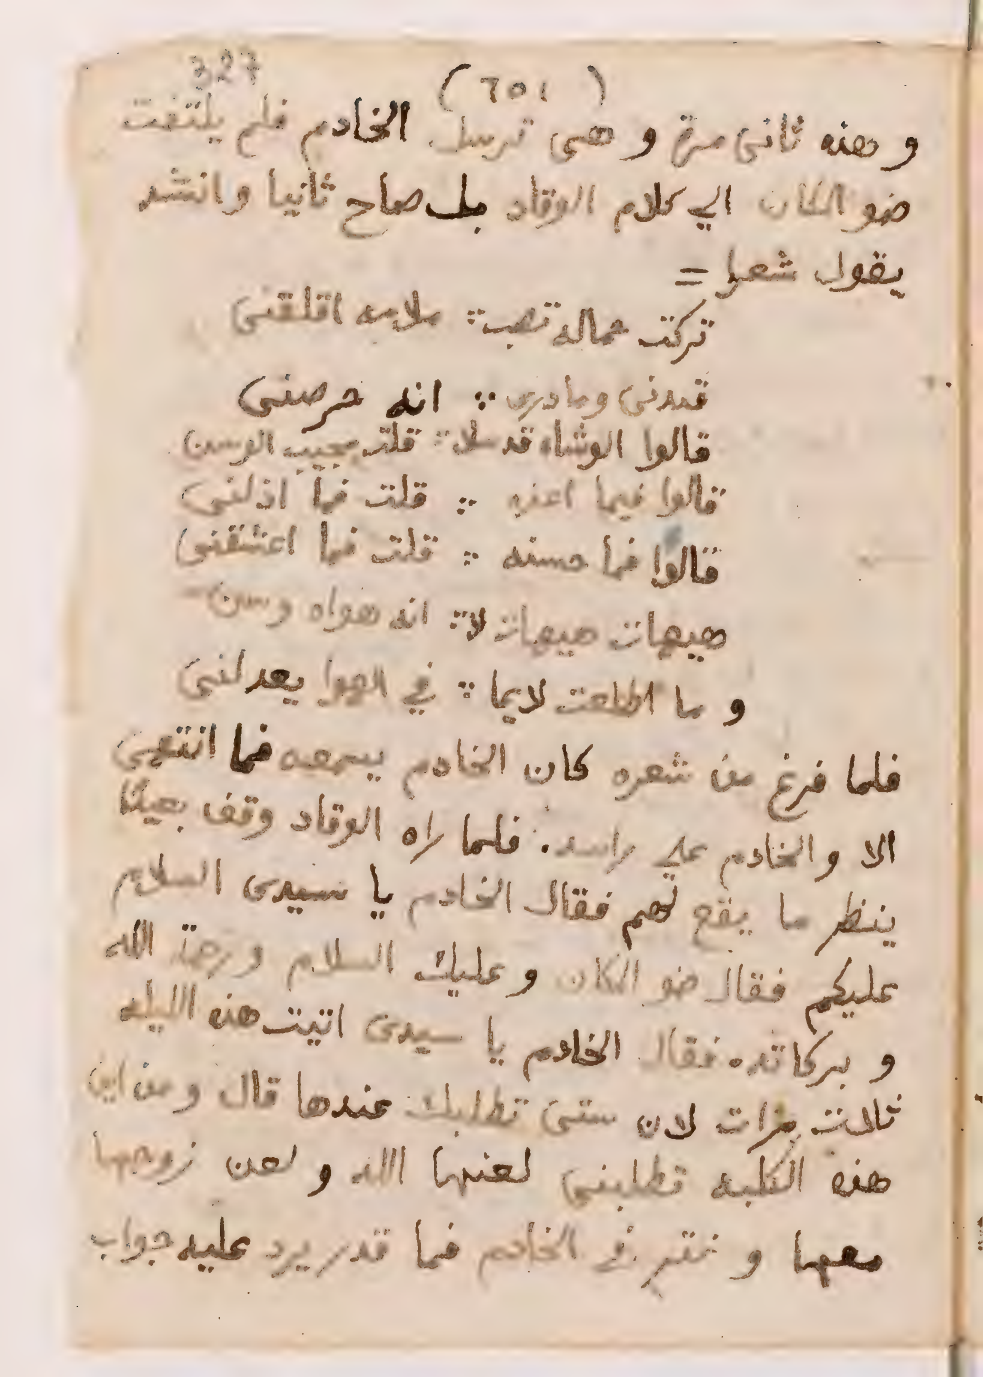 327
(٦٥١)
و هذه ثانى مرة و هى ترسل الخادم فلم يلتفت
ضو المكان الي كلام الوقاد بل صاح ثانيا وانشد
يقول شعرا =
تركت حماله تعب ∴ ملامه اقلقنى
∴ انه حرصنى
قالوا الوشاه قد سلا ∴ قلت الوسن
قالوا فيما اعزه ∴ قلت فما اذلنى
قالوا فما حسنه ∴ قلت فما اعشقنى
هيهات هيهات لا ∴ انه هواه وسن
و ما اطلعت لايما ∴ في الهوا يعدلنى
فلما فرغ من شعره كان الخادم يسمعه فما انتهى
الا والخادم على راسه. فلما راه الوقاد وقف بعيدًا
ينظر ما يقع لهم فقال الخادم يا سيدى السلام
عليكم فقال ضو المكان و عليك السلام و رحمة الله
و بركاته. فقال الخادم يا سيدى اتيت هذه الليله
ثلات مرات لان ستى تطلبك عندها قال و من اين
هذه الكلبه تطلبنى لعنها الله و لعن زوجها
معها و نتر فى الخادم فما قدر يرد عليه جواب